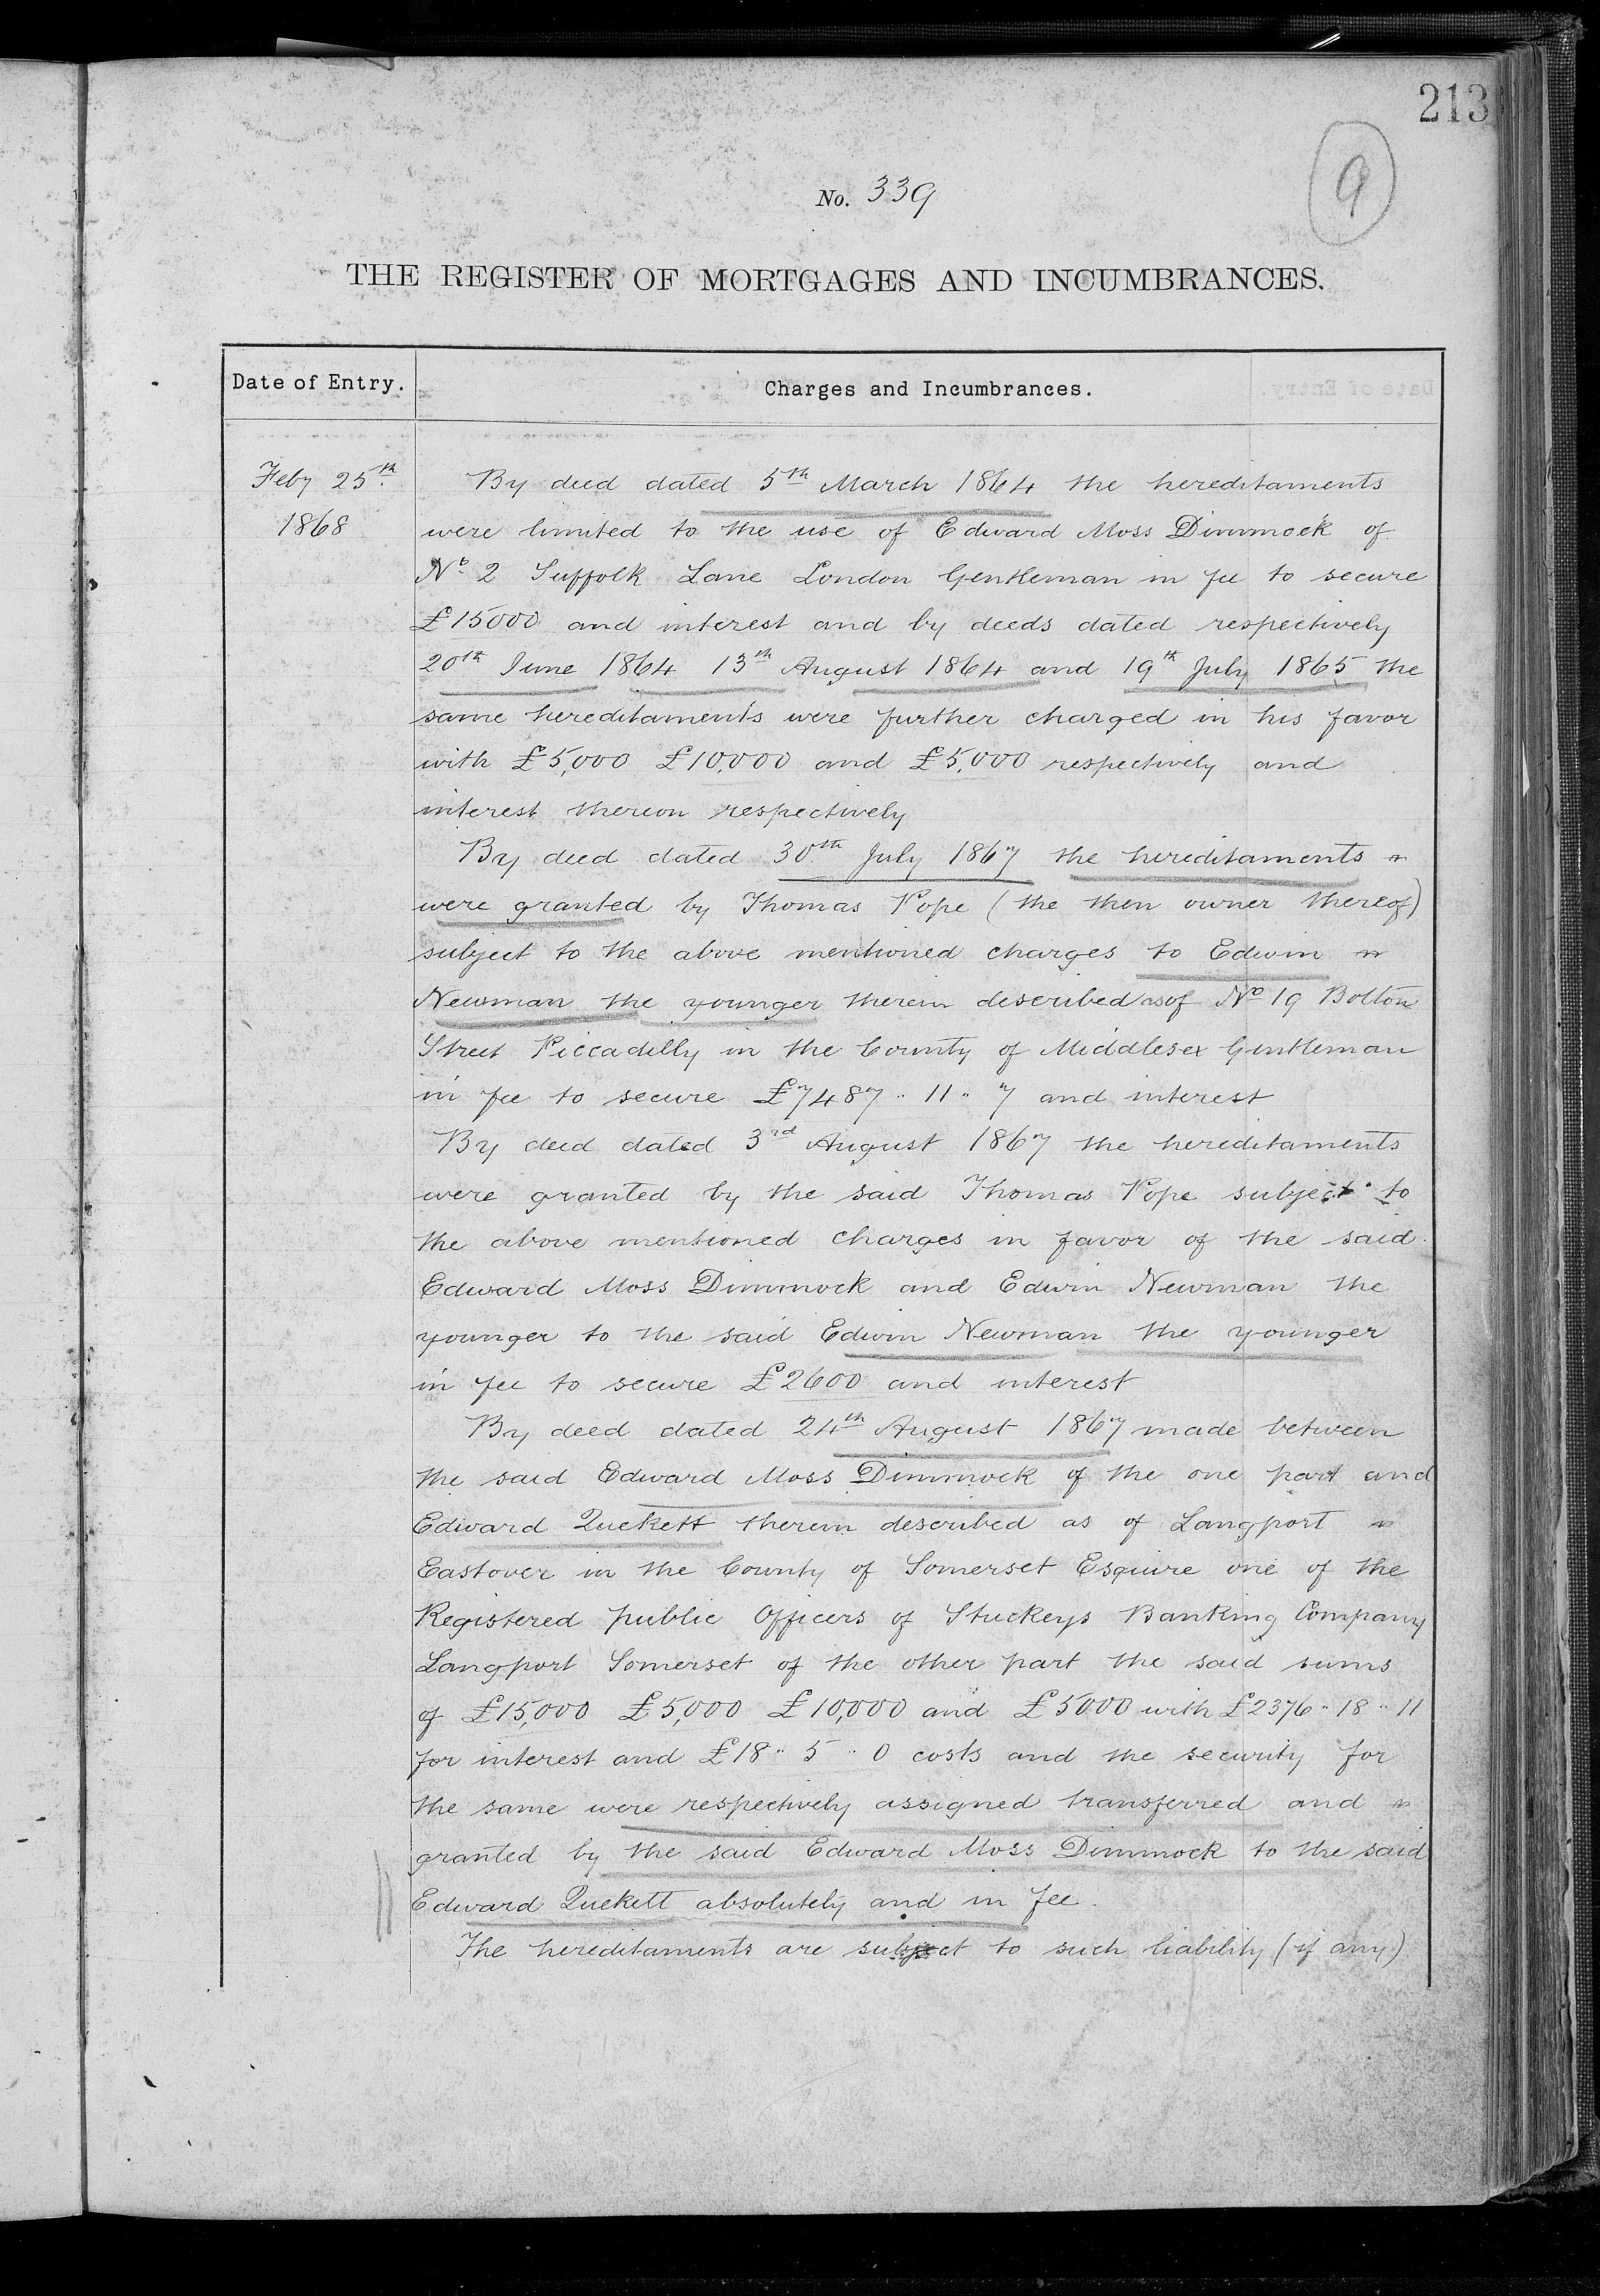 213
9
No. 339
THE REGISTER OF MORTGAGES AND INCUMBRANCES.
Date of Entry.
Charges and Incumbrances.
Feby 25th
1868
By deed dated 5th March 1864 the hereditaments
were limited to the use of Edward Moss Dimmock of
No 2 Suffolk Lane London Gentleman in fee to secure
£15000 and interest and by deeds dated respectively
20th June 1864 13th August 1864 and 19th July 1865 the
same hereditaments were further charged in his favor
with £5,000 £10,000 and £5,000 respectively and
interest thereon respectively
By deed dated 30th July 1867 the hereditaments
were granted by Thomas Pope (the then owner thereof)
subject to the above mentioned charges to Edwin
Newman the younger therein described as of No 19 Bolton
Street Piccadilly in the County of Middlesex Gentleman
in fee to secure £7487 .. 11 .. 7 and interest
By deed dated 3rd August 1867 the hereditaments
were granted by the said Thomas Pope subject to
the above mentioned charges in favor of the said
Edward Moss Dimmock and Edwin Newman the
younger to the said Edwin Newman the younger
in fee to secure £2600 and interest
By deed dated 24th August 1867 made between
the said Edward Moss Dimmock of the one part and
Edward Quekett therein described as of Langport
Eastover in the County of Somerset Esquire one of the
Registered public Officers of Stuckeys Banking Company
Langport Somerset of the other part the said sums
of £15,000 £5,000 £10,000 and £5000 with £2376 .. 18 .. 11
for interest and £18 .. 5 .. 0 costs and the security for
the same were respectively assigned transferred and
granted by the said Edward Moss Dimmock to the said
Edward Quekett absolutely and in fee.
The hereditaments are subject to such liability (if any)